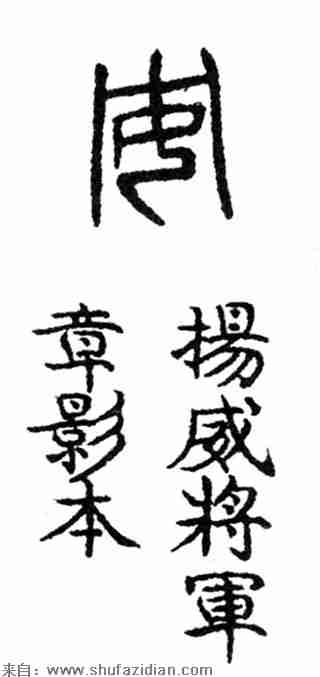 揚威將軍
章影本
来自：www.shufazidian.com